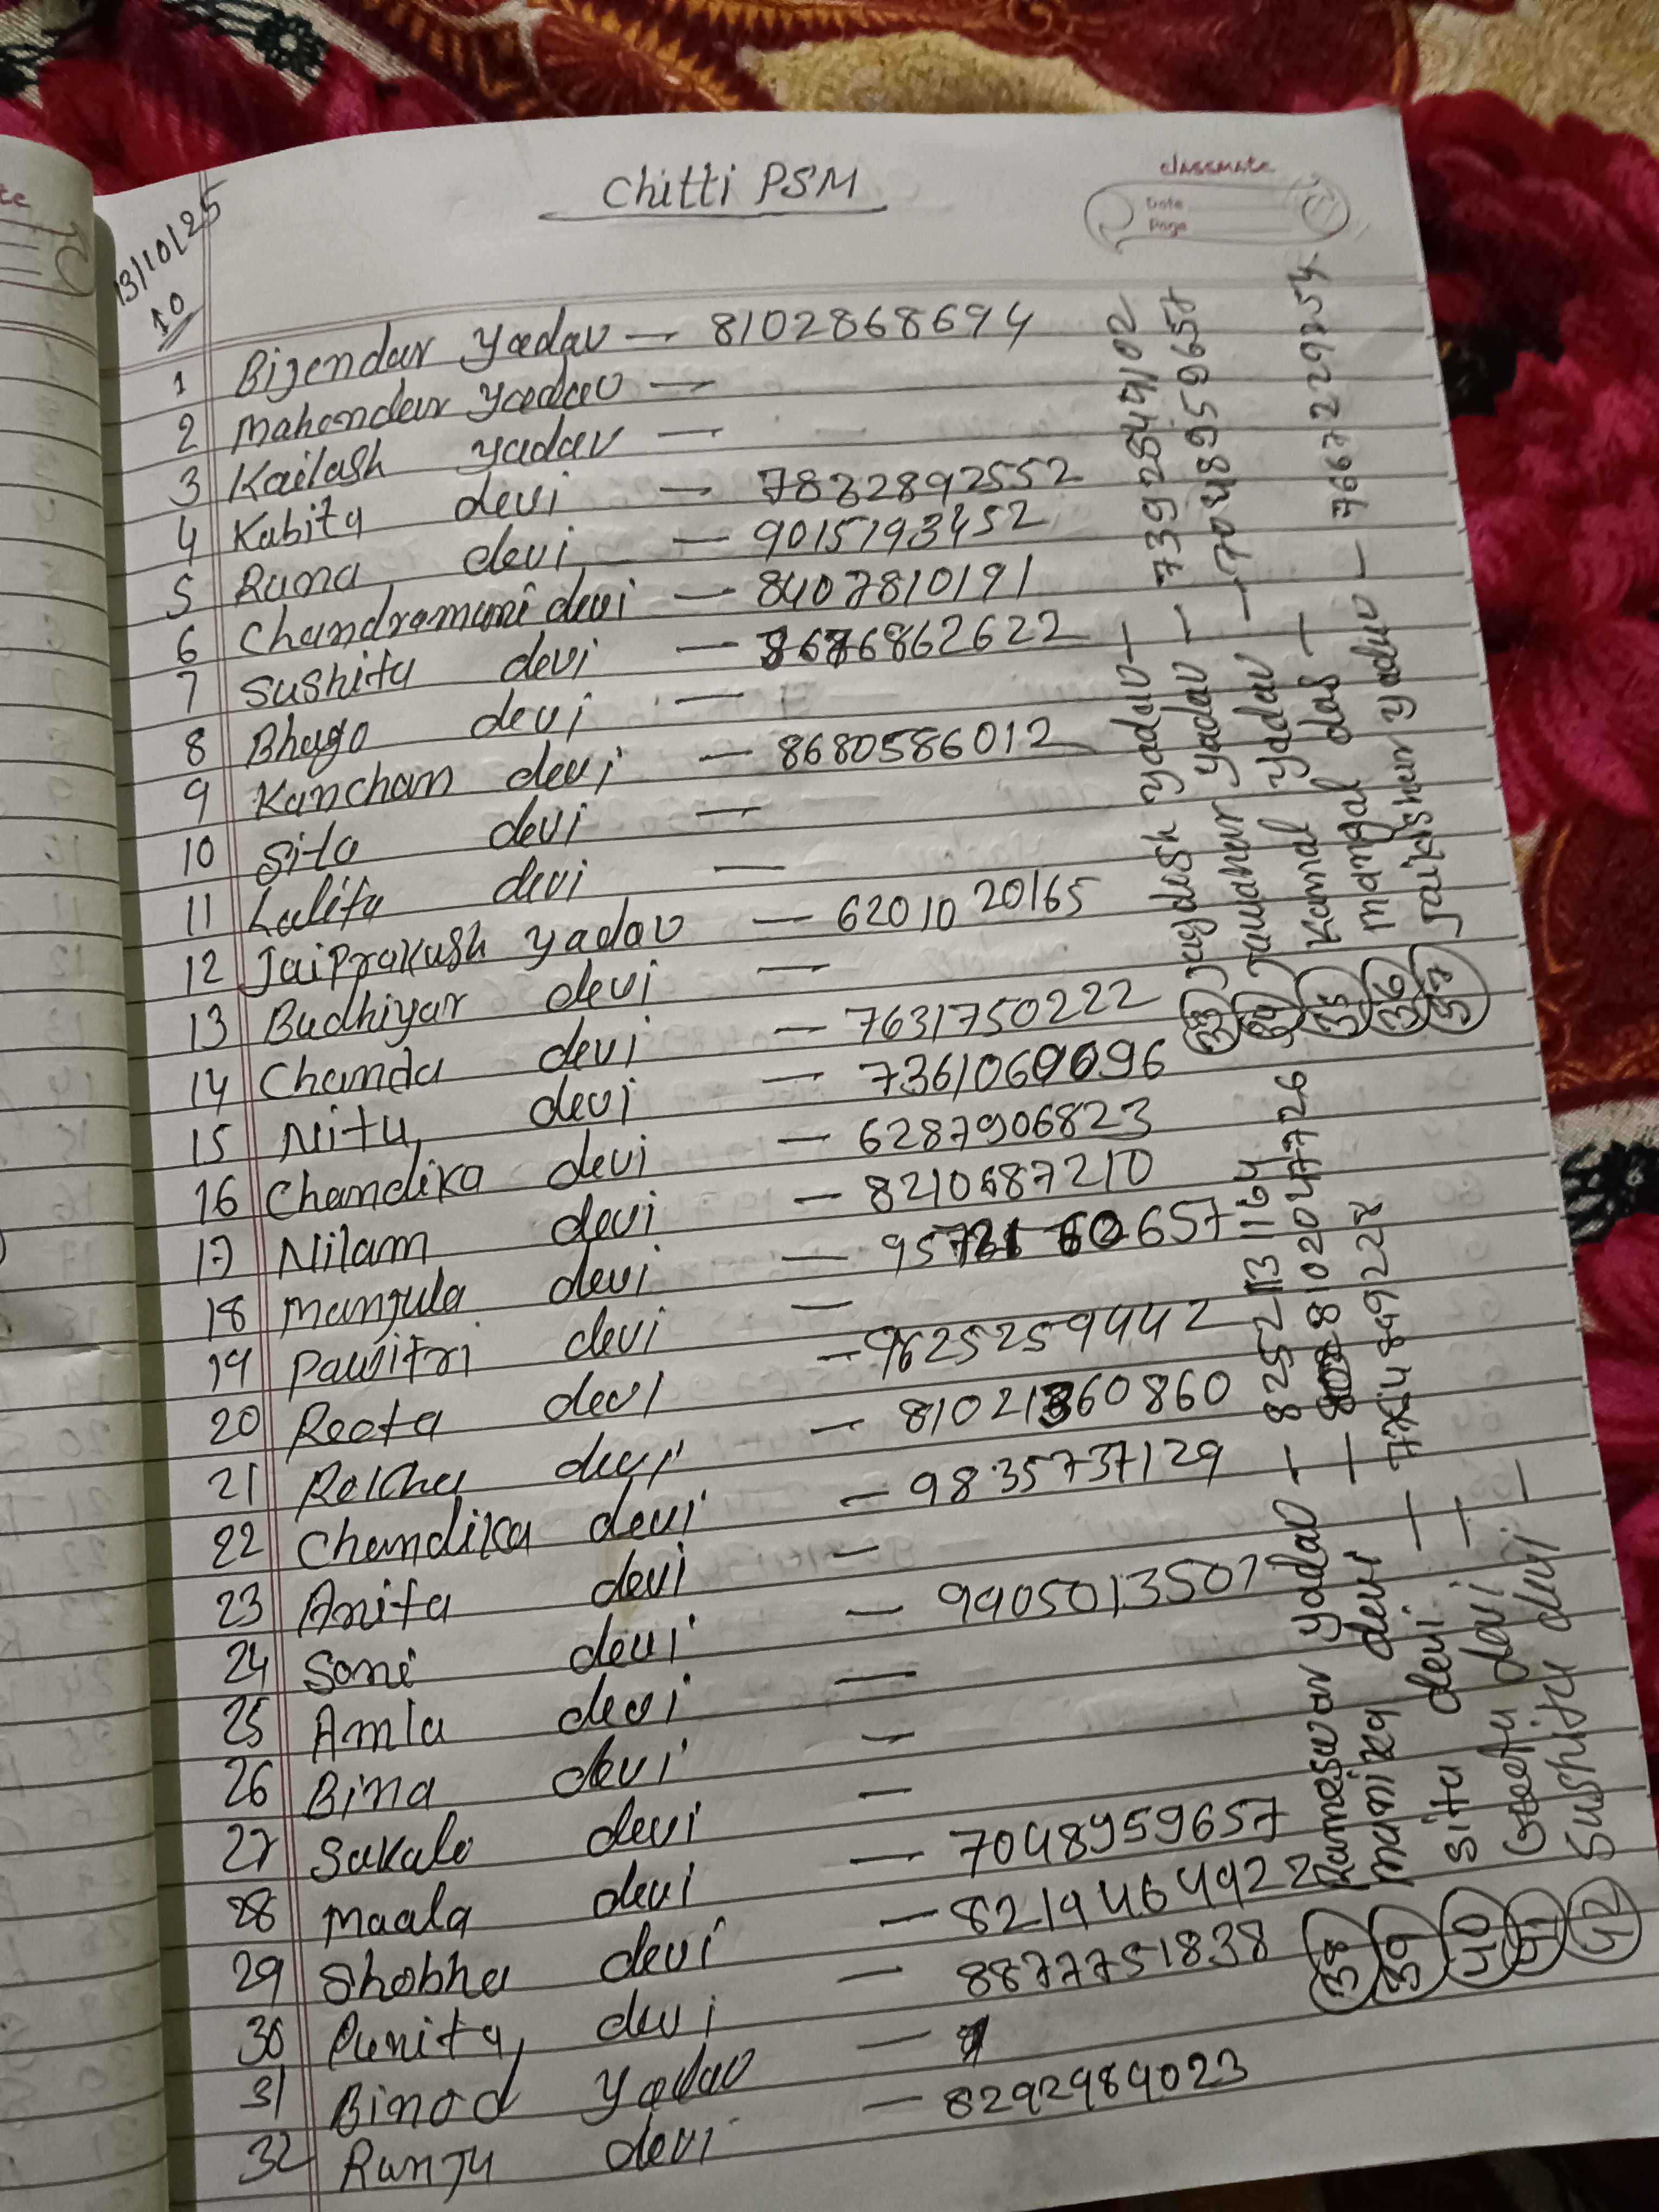 classmate
Date
Page
Chitti PSM
13/10/25
10
1 Bijendar Yadav — 8102868694
2 Mahendar Yadav —
3 Kailash Yadav —
4 Kabita devi — 7832892552
5 Runa devi — 9015193452
6 Chandramuni devi — 8407810191
7 Sushita devi — 862622
8 Bhago devi —
9 Kancham devi — 8680586012
10 Sita devi —
11 Lalita devi —
12 Jaiprakash Yadav — 6201020165
13 Budhiyar devi —
14 Chanda devi — 7631750222
15 Nitu devi — 7361060096
16 Chandika devi — 6287906823
17 Nilam devi — 8210687210
18 Manjula devi — 657
19 Pawitri devi —
20 Reeta devi — 9625259442
21 Rekha devi — 860860
22 Chandika devi — 9835737129
23 Anita devi —
24 Soni devi — 9905013507
25 Amla devi —
26 Bina devi —
27 Sakalo devi —
28 Maala devi — 7048959657
29 Shobha devi — 82194464922
30 Punita devi — 8877751838
31 Binod Yadav —
32 Runju devi — 8292989023
33 Jugdesh Yadav — 7392849102
34 Jawahar Yadav — 7048959657
35 Kamal Yadav —
36 Mangal das —
37 Jaikishun Yaduv — 7667229954
38 Rameswar Yadav — 82521131164
39 Manika devi — 8102047726
40 Sita devi — 8499228
41 Geeta devi —
42 Sushita devi —